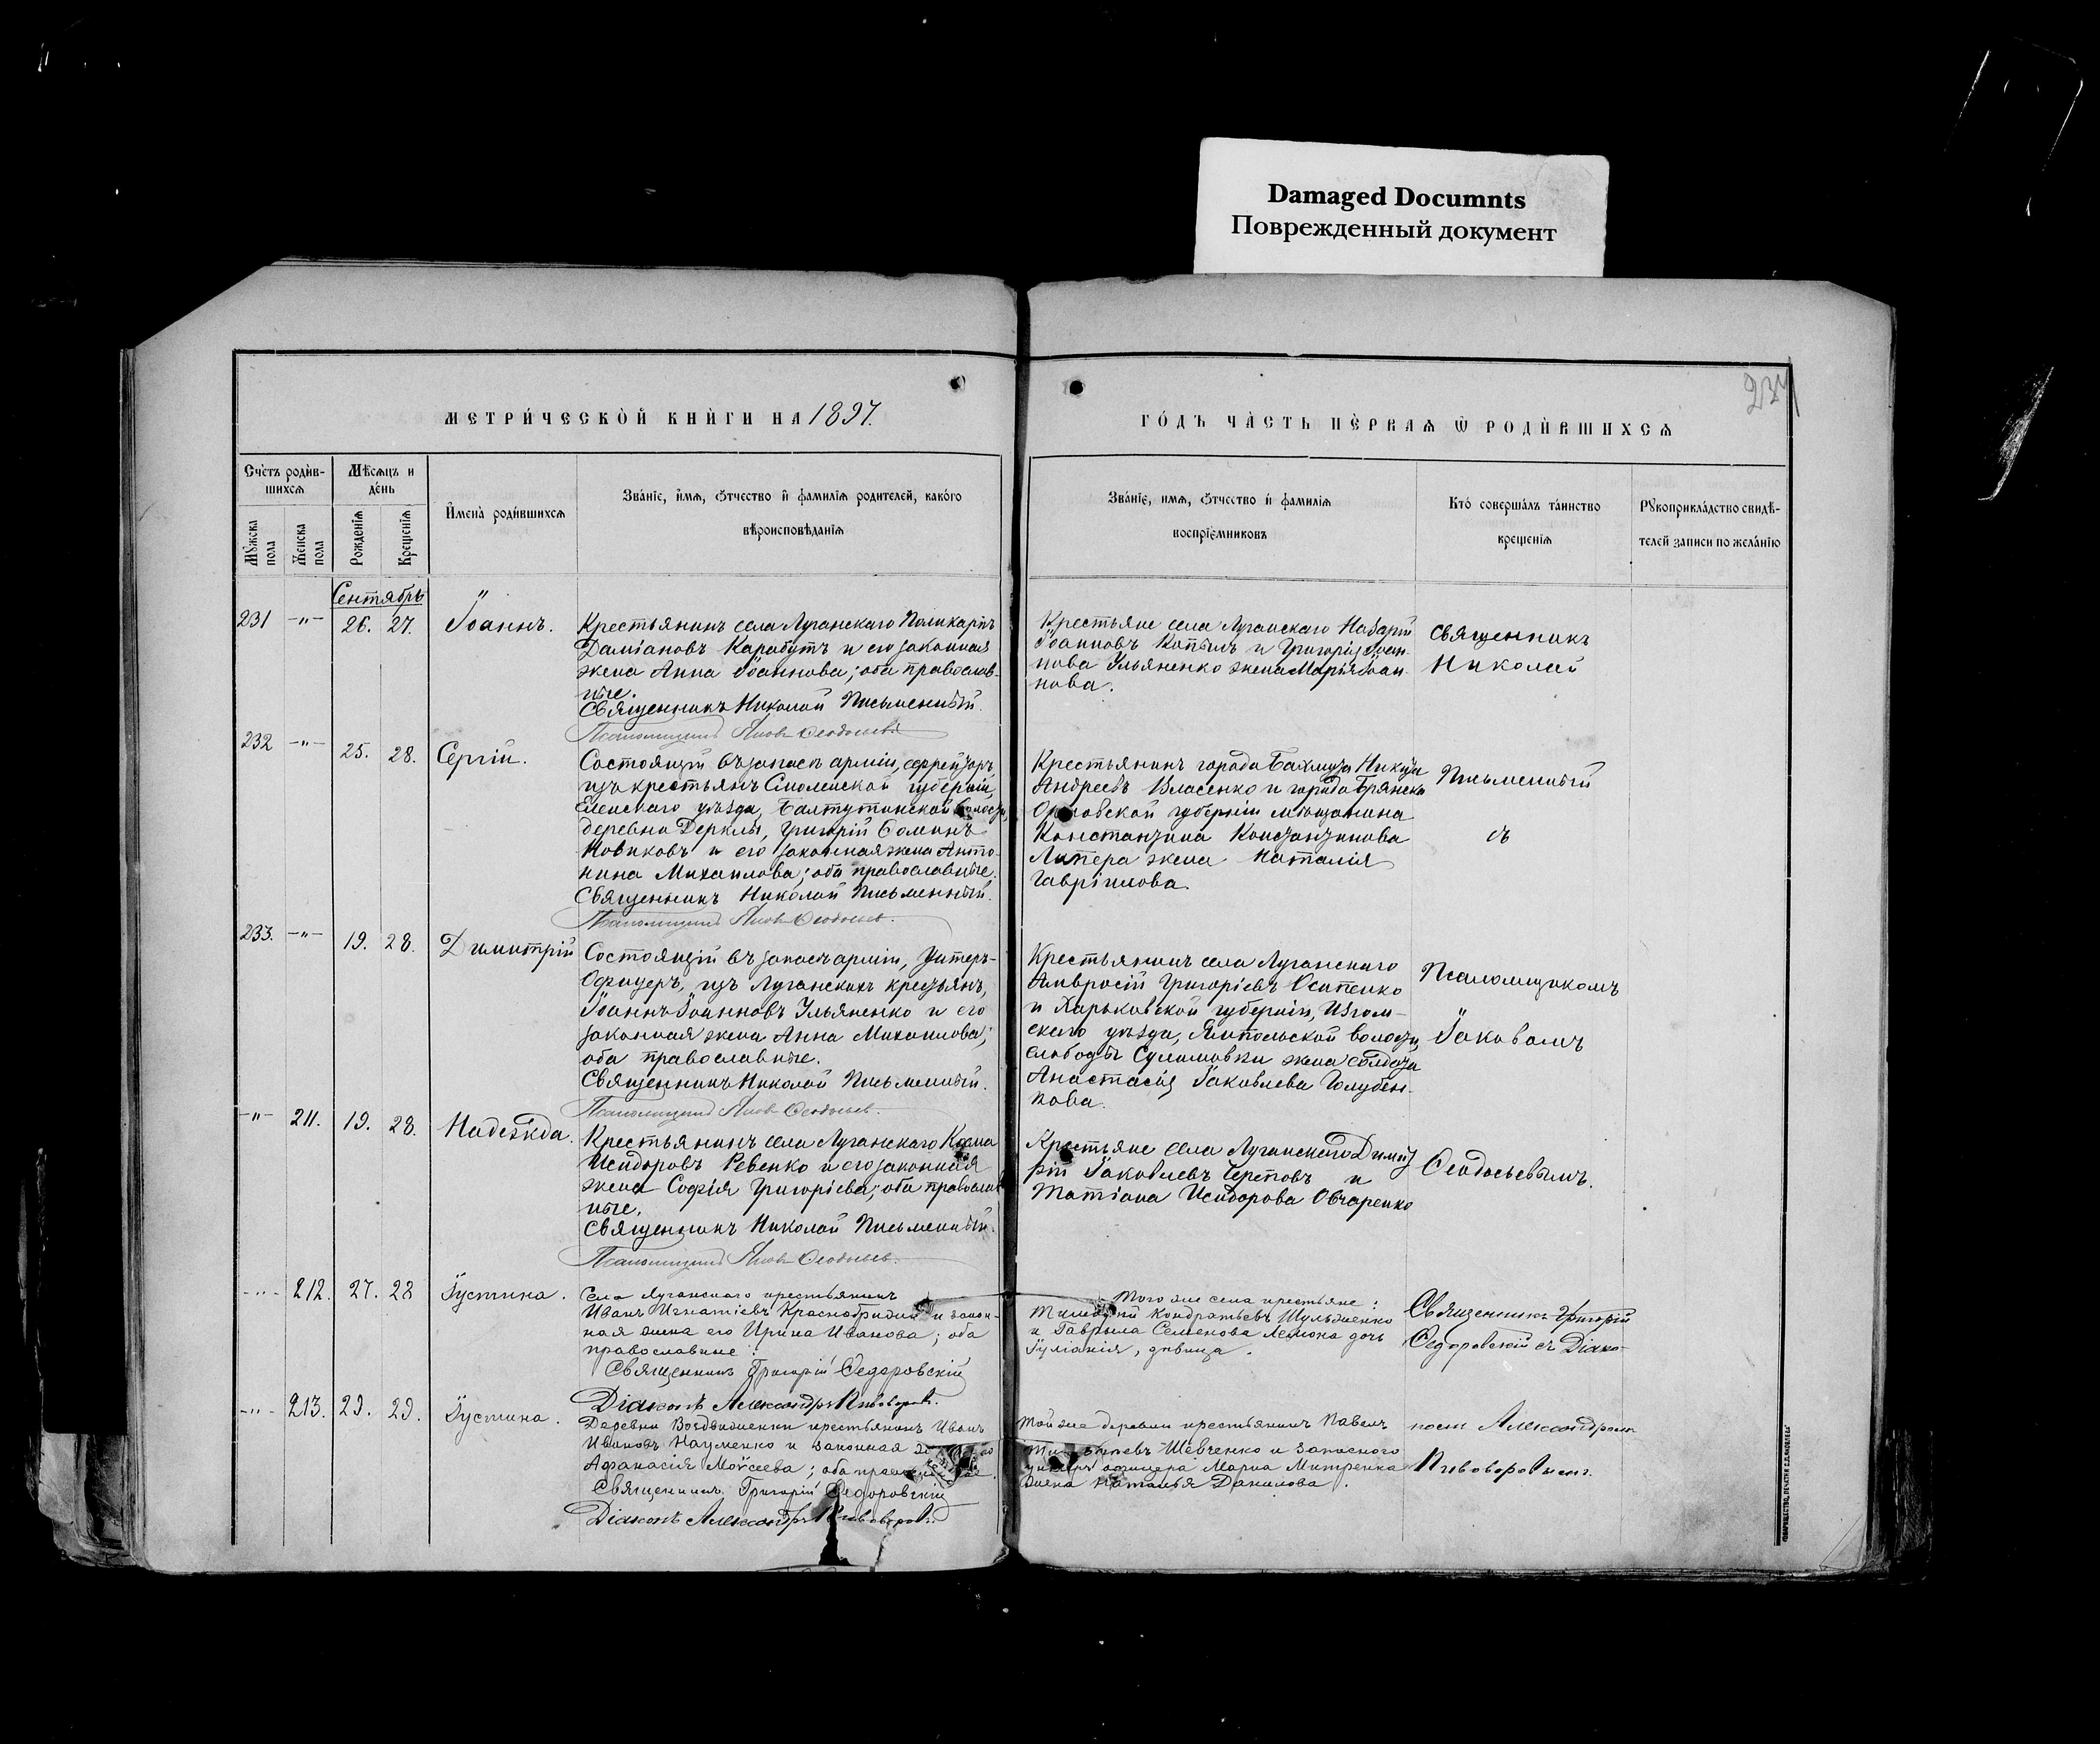 Damaged Documnts
Поврежденный документ
234
МЕТРИ́ЧЕСКОЙ КНИ́ГИ НА 1897.
ГО́ДЪ ЧА́СТЬ ПЕ́РВАѦ Ѡ РОДИ́ВШИХСѦ
Сче́тъ роди́в-
шихсѧ
Мѣ́сѧцъ и
де́нь
Мꙋ́жска пола
Же́нска пола
Рожде́нїѧ
Креще́нїѧ
И҆мена̀ роди́вшихсѧ
Зва́нїе, и҆мѧ, ѻтчество и҆ фамилїѧ родителей, како́го
вѣроисповѣданїѧ
Зва́нїе, имѧ, ѻтчество и҆ фамилїѧ
воспрїе́мниковъ
Кто̀ соверша́лъ та́инство
креще́нїѧ
Рꙋкоприкла́дство свидѣ-
телей записи по жела́нїю
Сентябрь
231 -"- 26. 27. Іоаннъ.
Крестьянинъ села Луганскаго Поликарпъ
Даміановъ Карабутъ и его законная
жена Анна Іоаннова; оба православ-
ные.
Священникъ Николай Письменный.
Псаломщикъ Яковъ Ѳеодосьевъ
Крестьяне села Луганскаго Назарій
Іоанновъ Копылъ и Григорія Іоан-
нова Ульяненко жена Марія Іоан-
нова.
Священникъ
Николай
232 -"- 25. 28. Сергій.
Состоящій въ запасѣ арміи, ефрейторъ
изъ крестьянъ Смоленской губерніи,
Ельнскаго уѣзда, Балтутинской волости,
деревни Дерклы, Григорій Ѳоминъ
Новиковъ и его законная жена Анто-
нина Михаилова; оба православные.
Священникъ Николай Письменный.
Псаломщикъ Яковъ Ѳеодосьевъ.
Крестьянинъ города Бахмута Никита
Андреевъ Власенко и города Брянска
Орловской губерніи мѣщанина
Константина Константинова
Липера жена Наталія
Гавріилова.
Письменный
съ
233. -"- 19. 28. Димитрій
Состоящій въ запасѣ арміи, Унтеръ-
Офицеръ, изъ Луганскихъ крестьянъ,
Іоаннъ Іоанновъ Ульяненко и его
законная жена Анна Михаилова;
оба православные.
Священникъ Николай Письменный.
Псаломщикъ Яковъ Ѳеодосьевъ.
Крестьянинъ села Луганскаго
Амвросій Григоріевъ Осипенко
и Харьковской губерніи, Изюм-
скаго уѣзда, Ямпольской волости,
слободы Сулимовки жена солдата
Анастасія Іаковлева Голубен-
кова.
Псаломщикомъ
Іаковомъ
-"- 211. 19. 28. Надежда.
Крестьянинъ села Луганскаго Козма
Исидоровъ Ревенко и его законная
жена Софія Григоріева; оба православ
ные.
Священникъ Николай Письменный.
Псаломщикъ Яковъ Ѳеодосьевъ.
Крестьяне села Луганскаго Димит
рій Іаковлевъ Череповъ и
Татіана Исидорова Овчаренко
Ѳеодосьевымъ.
-"- 212. 27. 28 Іустина.
Села Луганскаго крестьянинъ
Иванъ Игнатіевъ Краснобридній и закон-
ная жена его Ирина Иванова; оба
православные.
Священникъ Григорій Ѳедоровскій
Діаконъ Александръ Пивоваровъ.
Того же села крестьяне:
Тимоѳей Кондратьевъ Шульженко
и Гаврила Семенова Лемона дочь
Іуліанія, дѣвица.
Священникъ Григорій
Ѳедоровскій съ Діако-
-"- 213. 29. 29. Іустина.
Деревни Воздвиженки крестьянинъ Иванъ
Ивановъ Науменко и законная
Аѳанасія Моѵсеева; оба
Священникъ Григорій Ѳедоровскій
Діаконъ Александръ Пивоваровъ.
Той же деревни крестьянинъ Павелъ
Шевченко и запаснаго
унтеръ офицера Марка Митренка
жена Наталья Данилова.
номъ Александромъ
Пивоваровымъ.